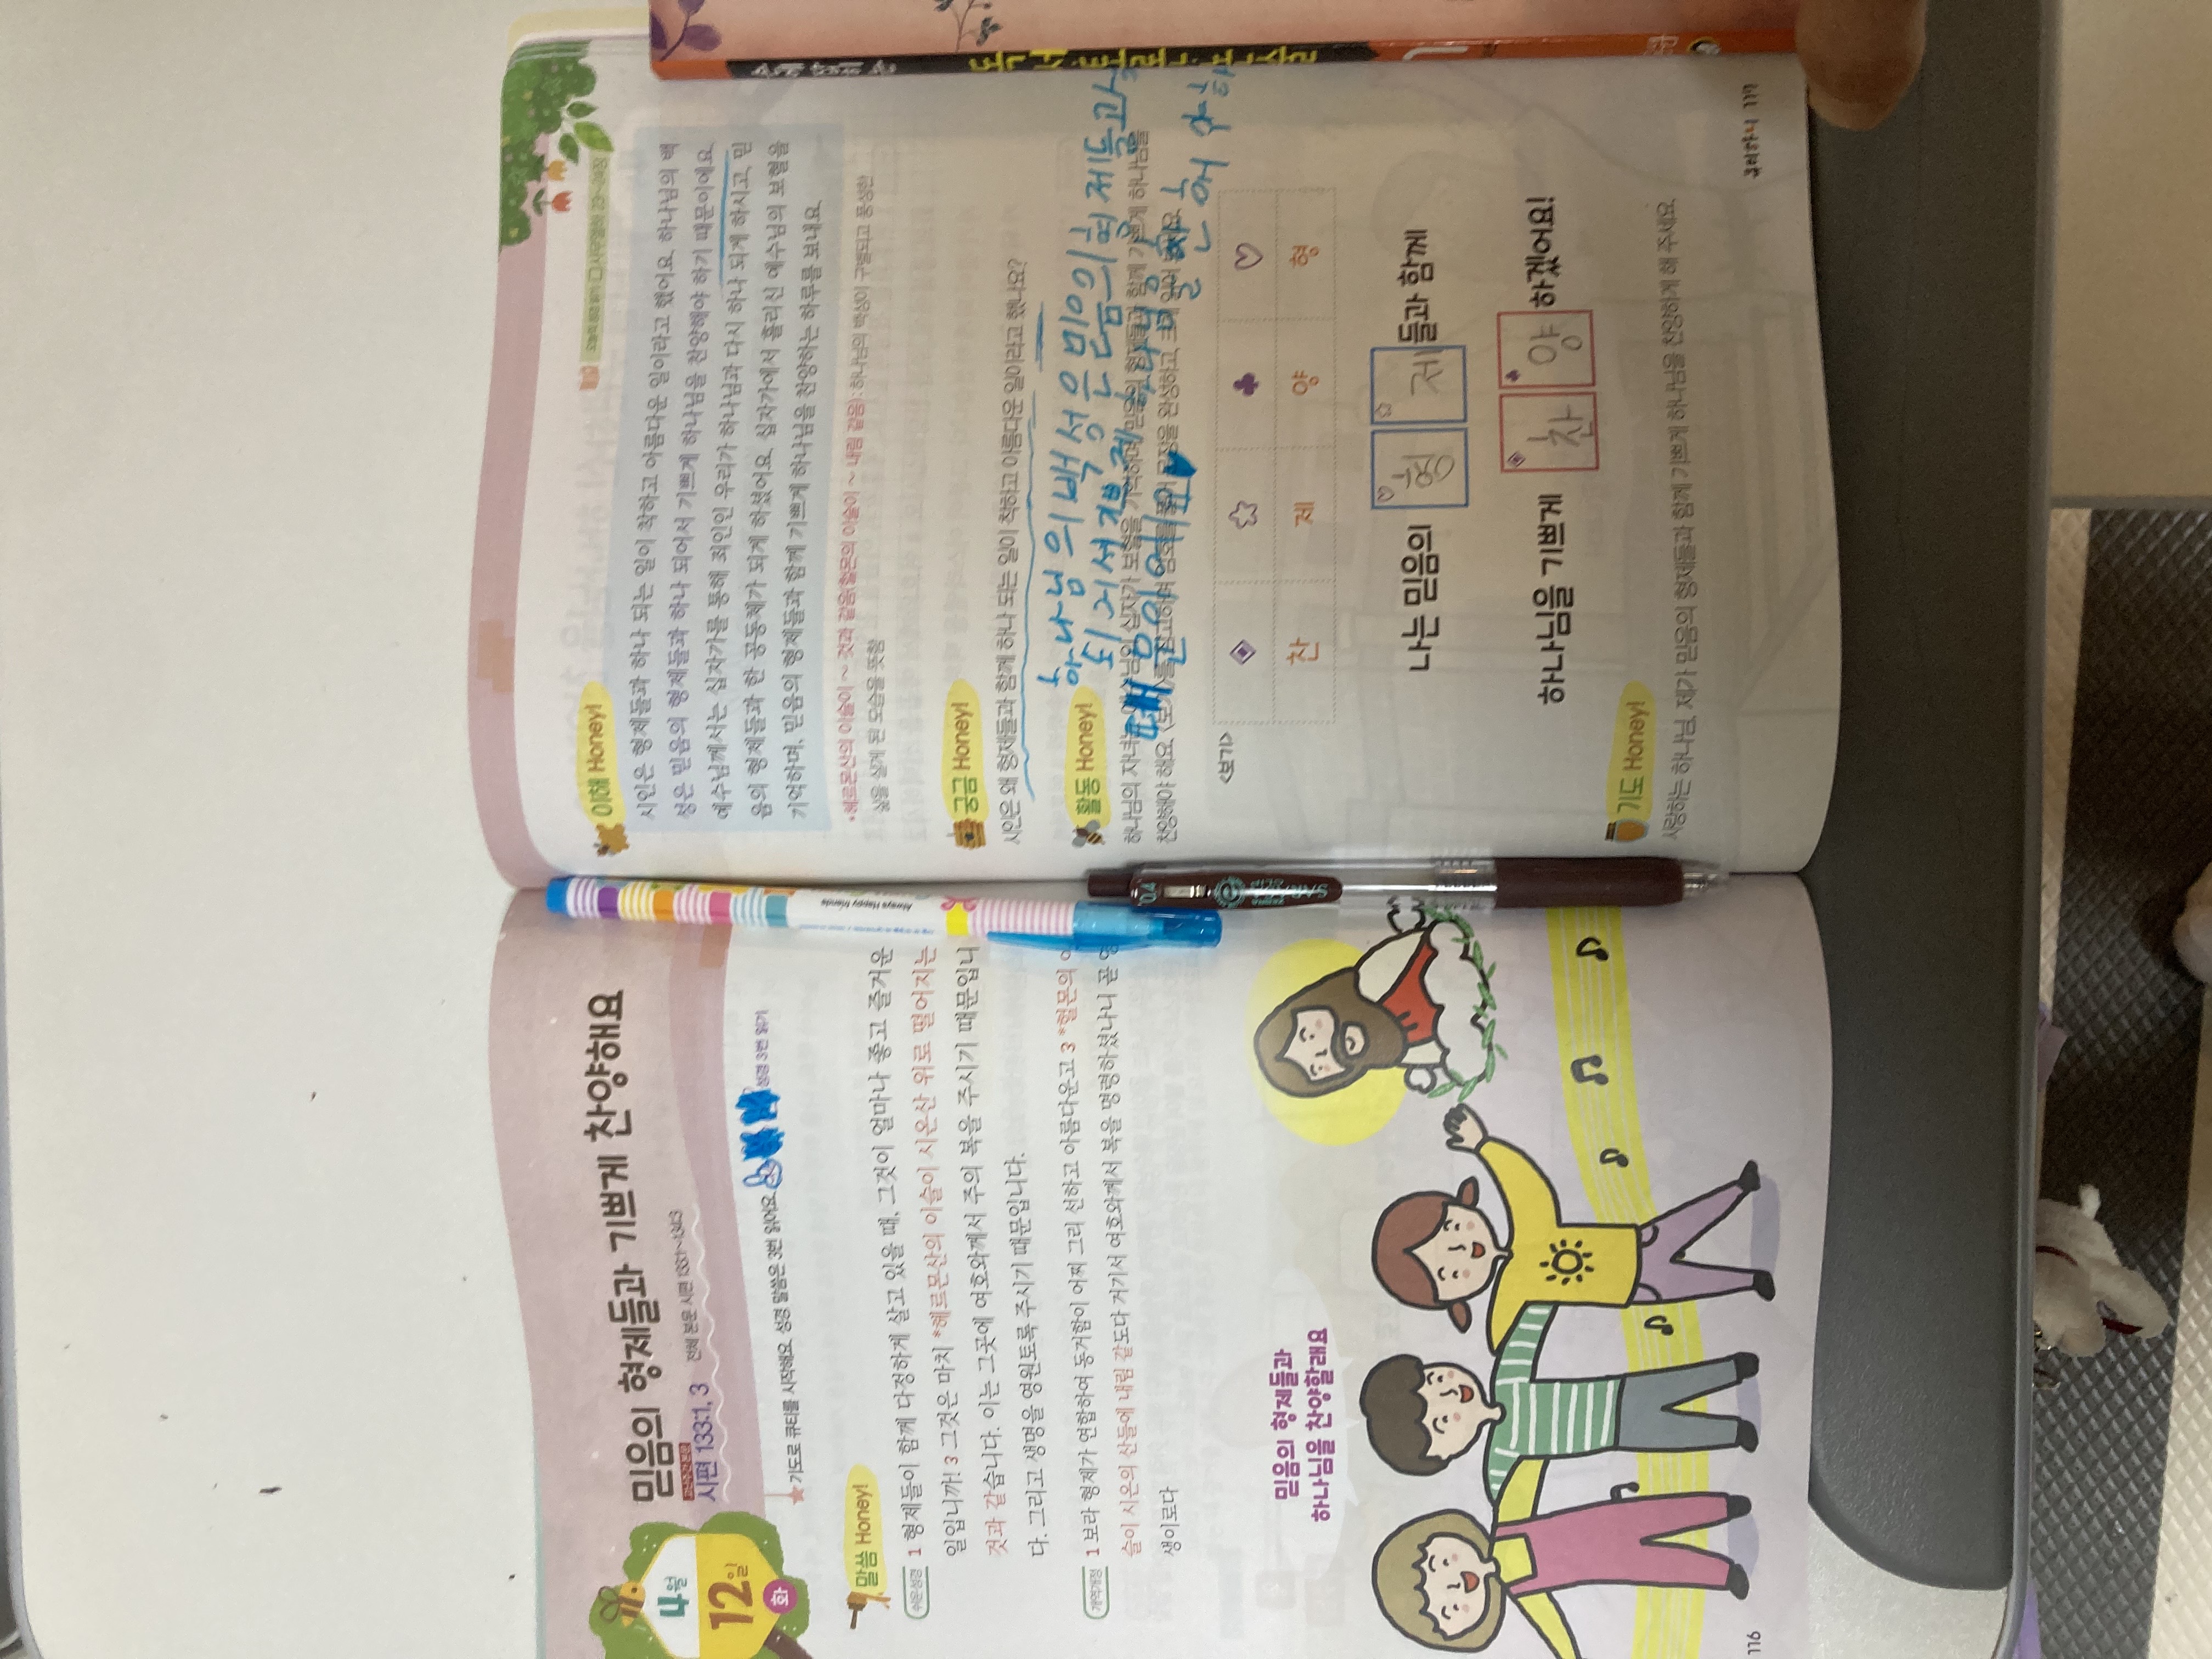 4월
12일
화
믿음의 형제들과 기쁘게 찬양해요
시편 133:1, 3 전체 본문 시편 133:1~134:3
★기도로 큐티를 시작해요. 성경 말씀은 3번 읽어요. 성경 3번 읽기
말씀 Honey!
쉬운성경 1 형제들이 함께 다정하게 살고 있을 때, 그것이 얼마나 좋고 즐거운
일입니까! 3 그것은 마치 *헤르몬산의 이슬이 시온산 위로 떨어지는
것과 같습니다. 이는 그곳에 여호와께서 주의 복을 주시기 때문입니
다. 그리고 생명을 영원토록 주시기 때문입니다.
개역개정 1 보라 형제가 연합하여 동거함이 어찌 그리 선하고 아름다운고 3 *헐몬의
슬이 시온의 산들에 내림 같도다 거기서 여호와께서 복을 명령하셨나니 곧
생이로다
믿음의 형제들과
하나님을 찬양할래요
116
Always Happy friends
0.4
이해 Honey!
시인은 형제들과 하나 되는 일이 착하고 아름다운 일이라고 했어요. 하나님의 백
성은 믿음의 형제들과 하나 되어서 기쁘게 하나님을 찬양해야 하기 때문이에요.
예수님께서는 십자가를 통해 죄인인 우리가 하나님과 다시 하나 되게 하시고, 믿
음의 형제들과 한 공동체가 되게 하셨어요. 십자가에서 흘리신 예수님의 보혈을
기억하며, 믿음의 형제들과 함께 기쁘게 하나님을 찬양하는 하루를 보내요.
*헤르몬산의 이슬이 ~ 것과 같음(헐몬의 이슬이 ~ 내림 같음): 하나님의 백성이 구별되고 풍성한
삶을 살게 된 모습을 뜻함
궁금 Honey!
시인은 왜 형제들과 함께 하나 되는 일이 착하고 아름다운 일이라고 했나요?
하나님의 백성은 믿음의 형제들과
되어서 기쁘게 하나님을 찬양해야 하
때문이에요
활동 Honey!
하나님의 자녀는 예수님의 십자가 보혈을 기억하며 믿음의 형제들과 함께 기쁘게 하나님을
찬양해야 해요. <보기>를 참고하여 암호를 풀어 문장을 완성하고, 크게 읽어 보세요.
<보기>
찬 제 양 형
나는 믿음의 형제들과 함께
하나님을 기쁘게 찬양하겠어요!
기도 Honey!
사랑하는 하나님, 제가 믿음의 형제들과 함께 기쁘게 하나님을 찬양하게 해 주세요.
큐티하니 117